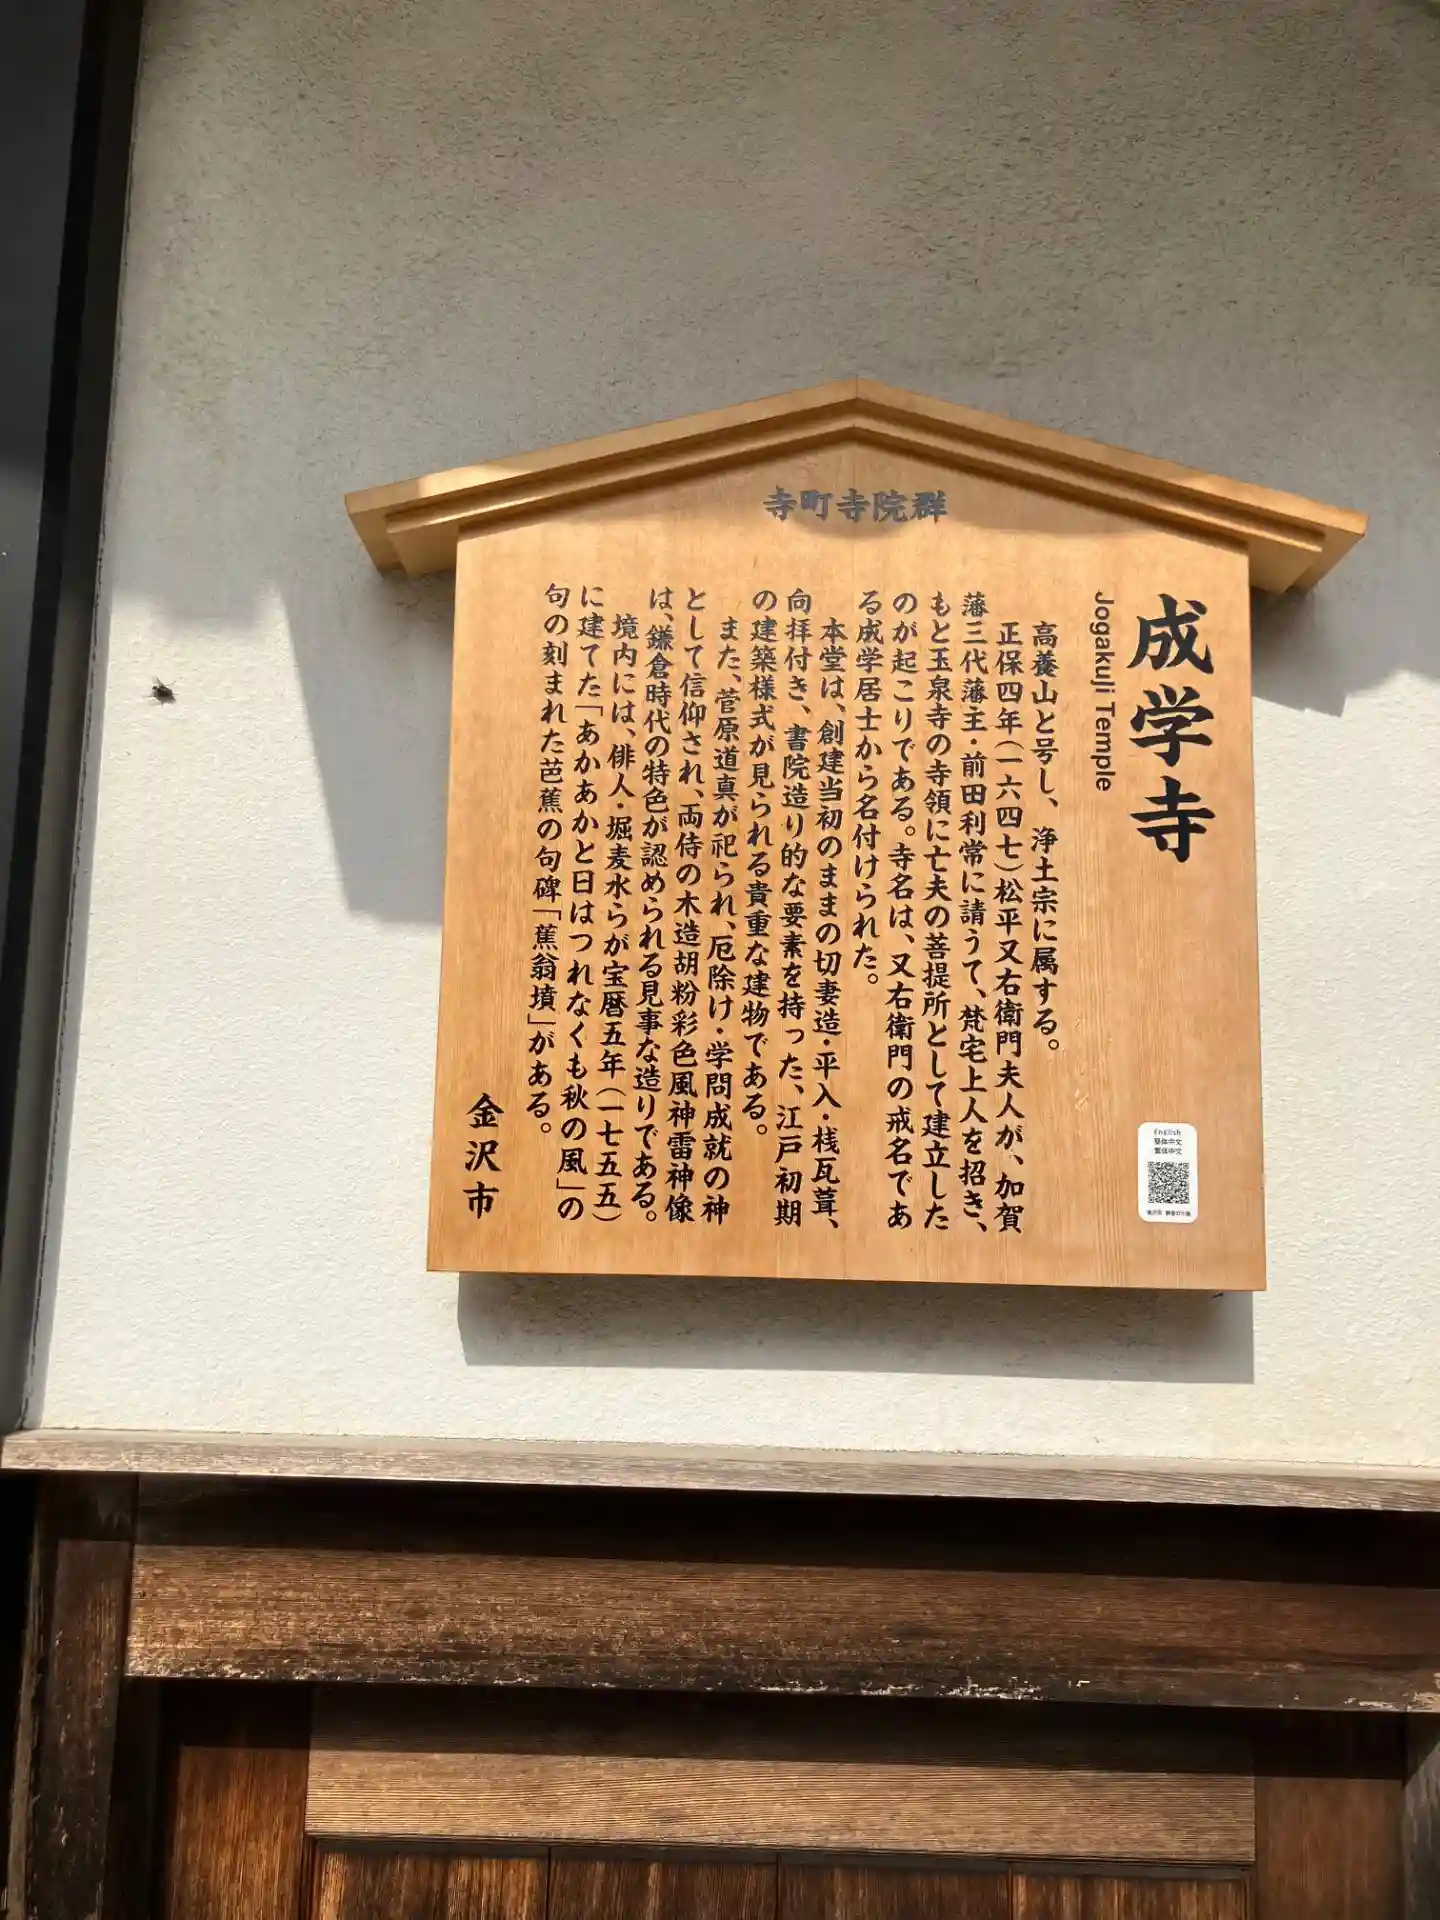 寺町寺院群
成学寺
Jogakuji Temple
高養山と号し、浄土宗に属する。
正保四年(一六四七)松平又右衛門夫人が、加賀
藩三代藩主・前田利常に請うて、梵宅上人を招き、
もと玉泉寺の寺領に亡夫の菩提所として建立した
のが起こりである。寺名は、又右衛門の戒名であ
る成学居士から名付けられた。
本堂は、創建当初のままの切妻造・平入・桟瓦葺、
向拝付き、書院造り的な要素を持った、江戸初期
の建築様式が見られる貴重な建物である。
また、菅原道真が祀られ、厄除け・学問成就の神
として信仰され、両侍の木造胡粉彩色風神雷神像
は、鎌倉時代の特色が認められる見事な造りである。
境内には、俳人・堀麦水らが宝暦五年(一七五五)
に建てた「あかあかと日はつれなくも秋の風」の
句の刻まれた芭蕉の句碑「蕉翁墳」がある。
金沢市
English
简体中文
繁体中文